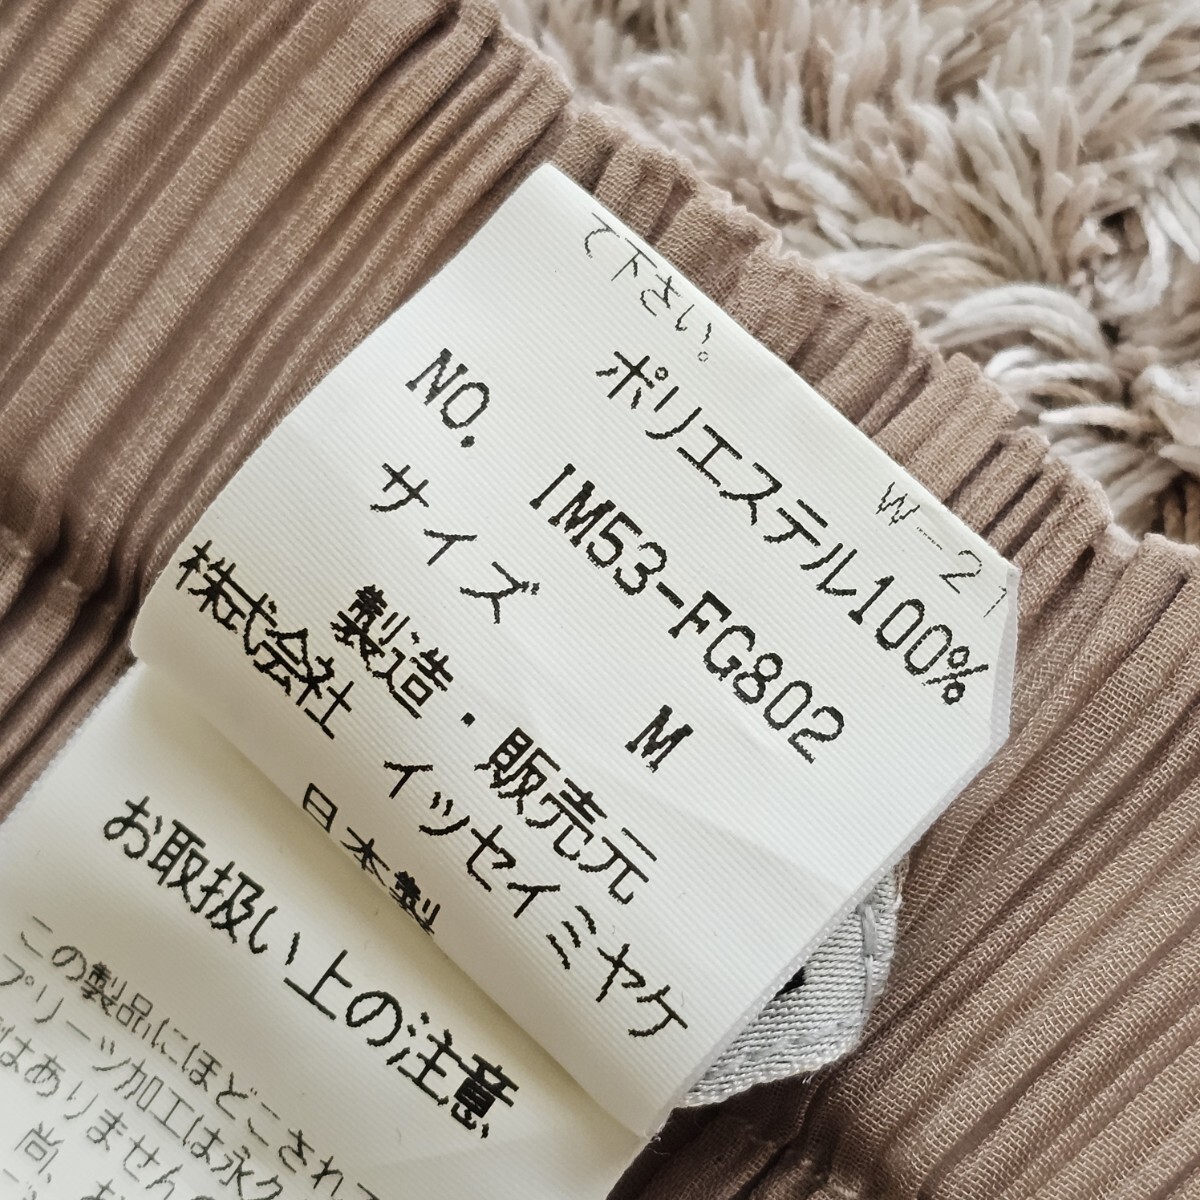 て下さい。
W-21
ポリエステル100%
NO. IM53-FG802
サイズ M
製造・販売元
株式会社 イッセイミヤケ
日本製
お取扱い上の注意
この製品にほどこされ
プリーツ加工は永久
はありません
尚、お